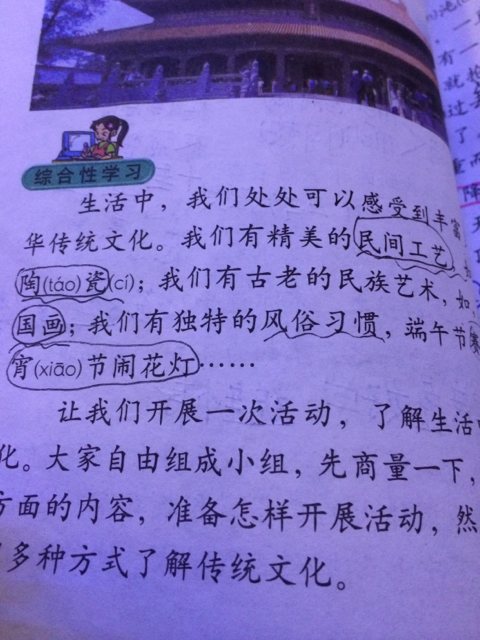 综合性学习
生活中，我们处处可以感受到丰富
华传统文化。我们有精美的民间工艺
陶(táo)瓷(cí)；我们有古老的民族艺术，如，
国画；我们有独特的风俗习惯，端午节赛
宵(xiāo)节闹花灯……
让我们开展一次活动，了解生活
化。大家自由组成小组，先商量一下，
方面的内容，准备怎样开展活动，然
多种方式了解传统文化。
一
有一
就
过
了